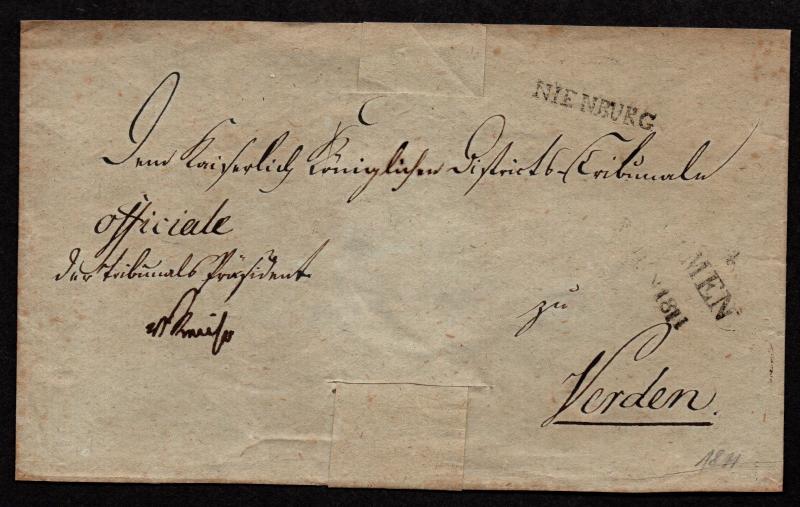 NIENBURG
Dem Kaiserlich Königlichen Districts-Tribunale
officiale
der Tribunals Präsident
MEN
1811
zu
Verden.
1811